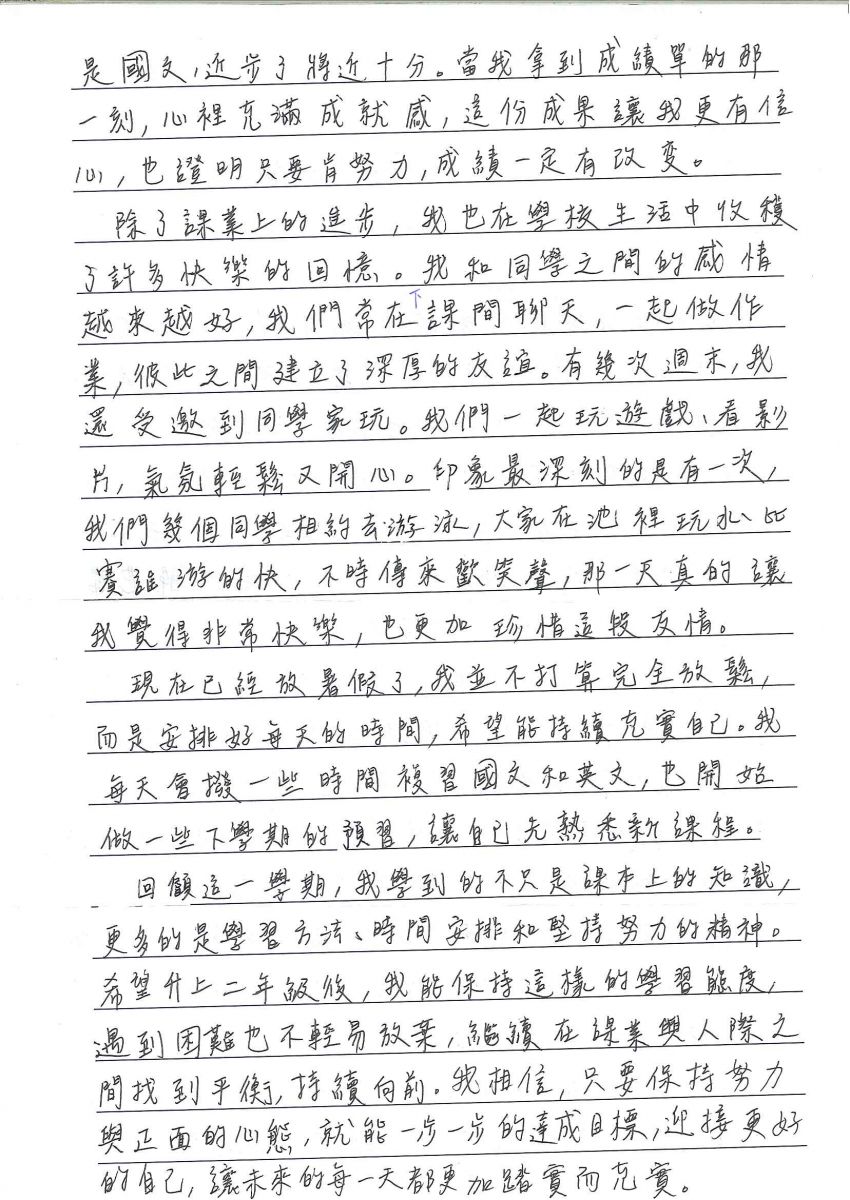 是國文，近步了將近十分。當我拿到成績單的那
一刻，心裡充滿成就感，這份成果讓我更有信
心，也證明只要肯努力，成績一定有改变。
除了課業上的進步，我也在學校生活中收穫
了許多快樂的回憶。我和同學之間的感情
越來越好，我們常在下課間聊天，一起做作
業，彼此之間建立了深厚的友誼。有幾次週末，我
還受邀到同學家玩。我們一起玩遊戲、看影
片，氣氛輕鬆又開心。印象最深刻的是有一次，
我們幾個同學相約去游泳，大家在池裡玩水、比
賽誰游的快，不時傳來歡笑聲，那一天真的讓
我覺得非常快樂，也更加珍惜這段友情。
現在已經放暑假了，我並不打算完全放鬆，
而是安排好每天的時間，希望能持續充實自己。我
每天會撥一些時間複習國文和英文，也開始
做一些下學期的預習，讓自己先熟悉新課程。
回顧這一學期，我學到的不只是課本上的知識，
更多的是學習方法、時間安排和堅持努力的精神。
希望升上二年級後，我能保持這樣的學習態度，
遇到困難也不輕易放棄，繼續在課業與人際之
間找到平衡，持續向前。我相信，只要保持努力
與正面的心態，就能一步一步的達成目標，迎接更好
的自己，讓未來的每一天都更加踏實而充實。